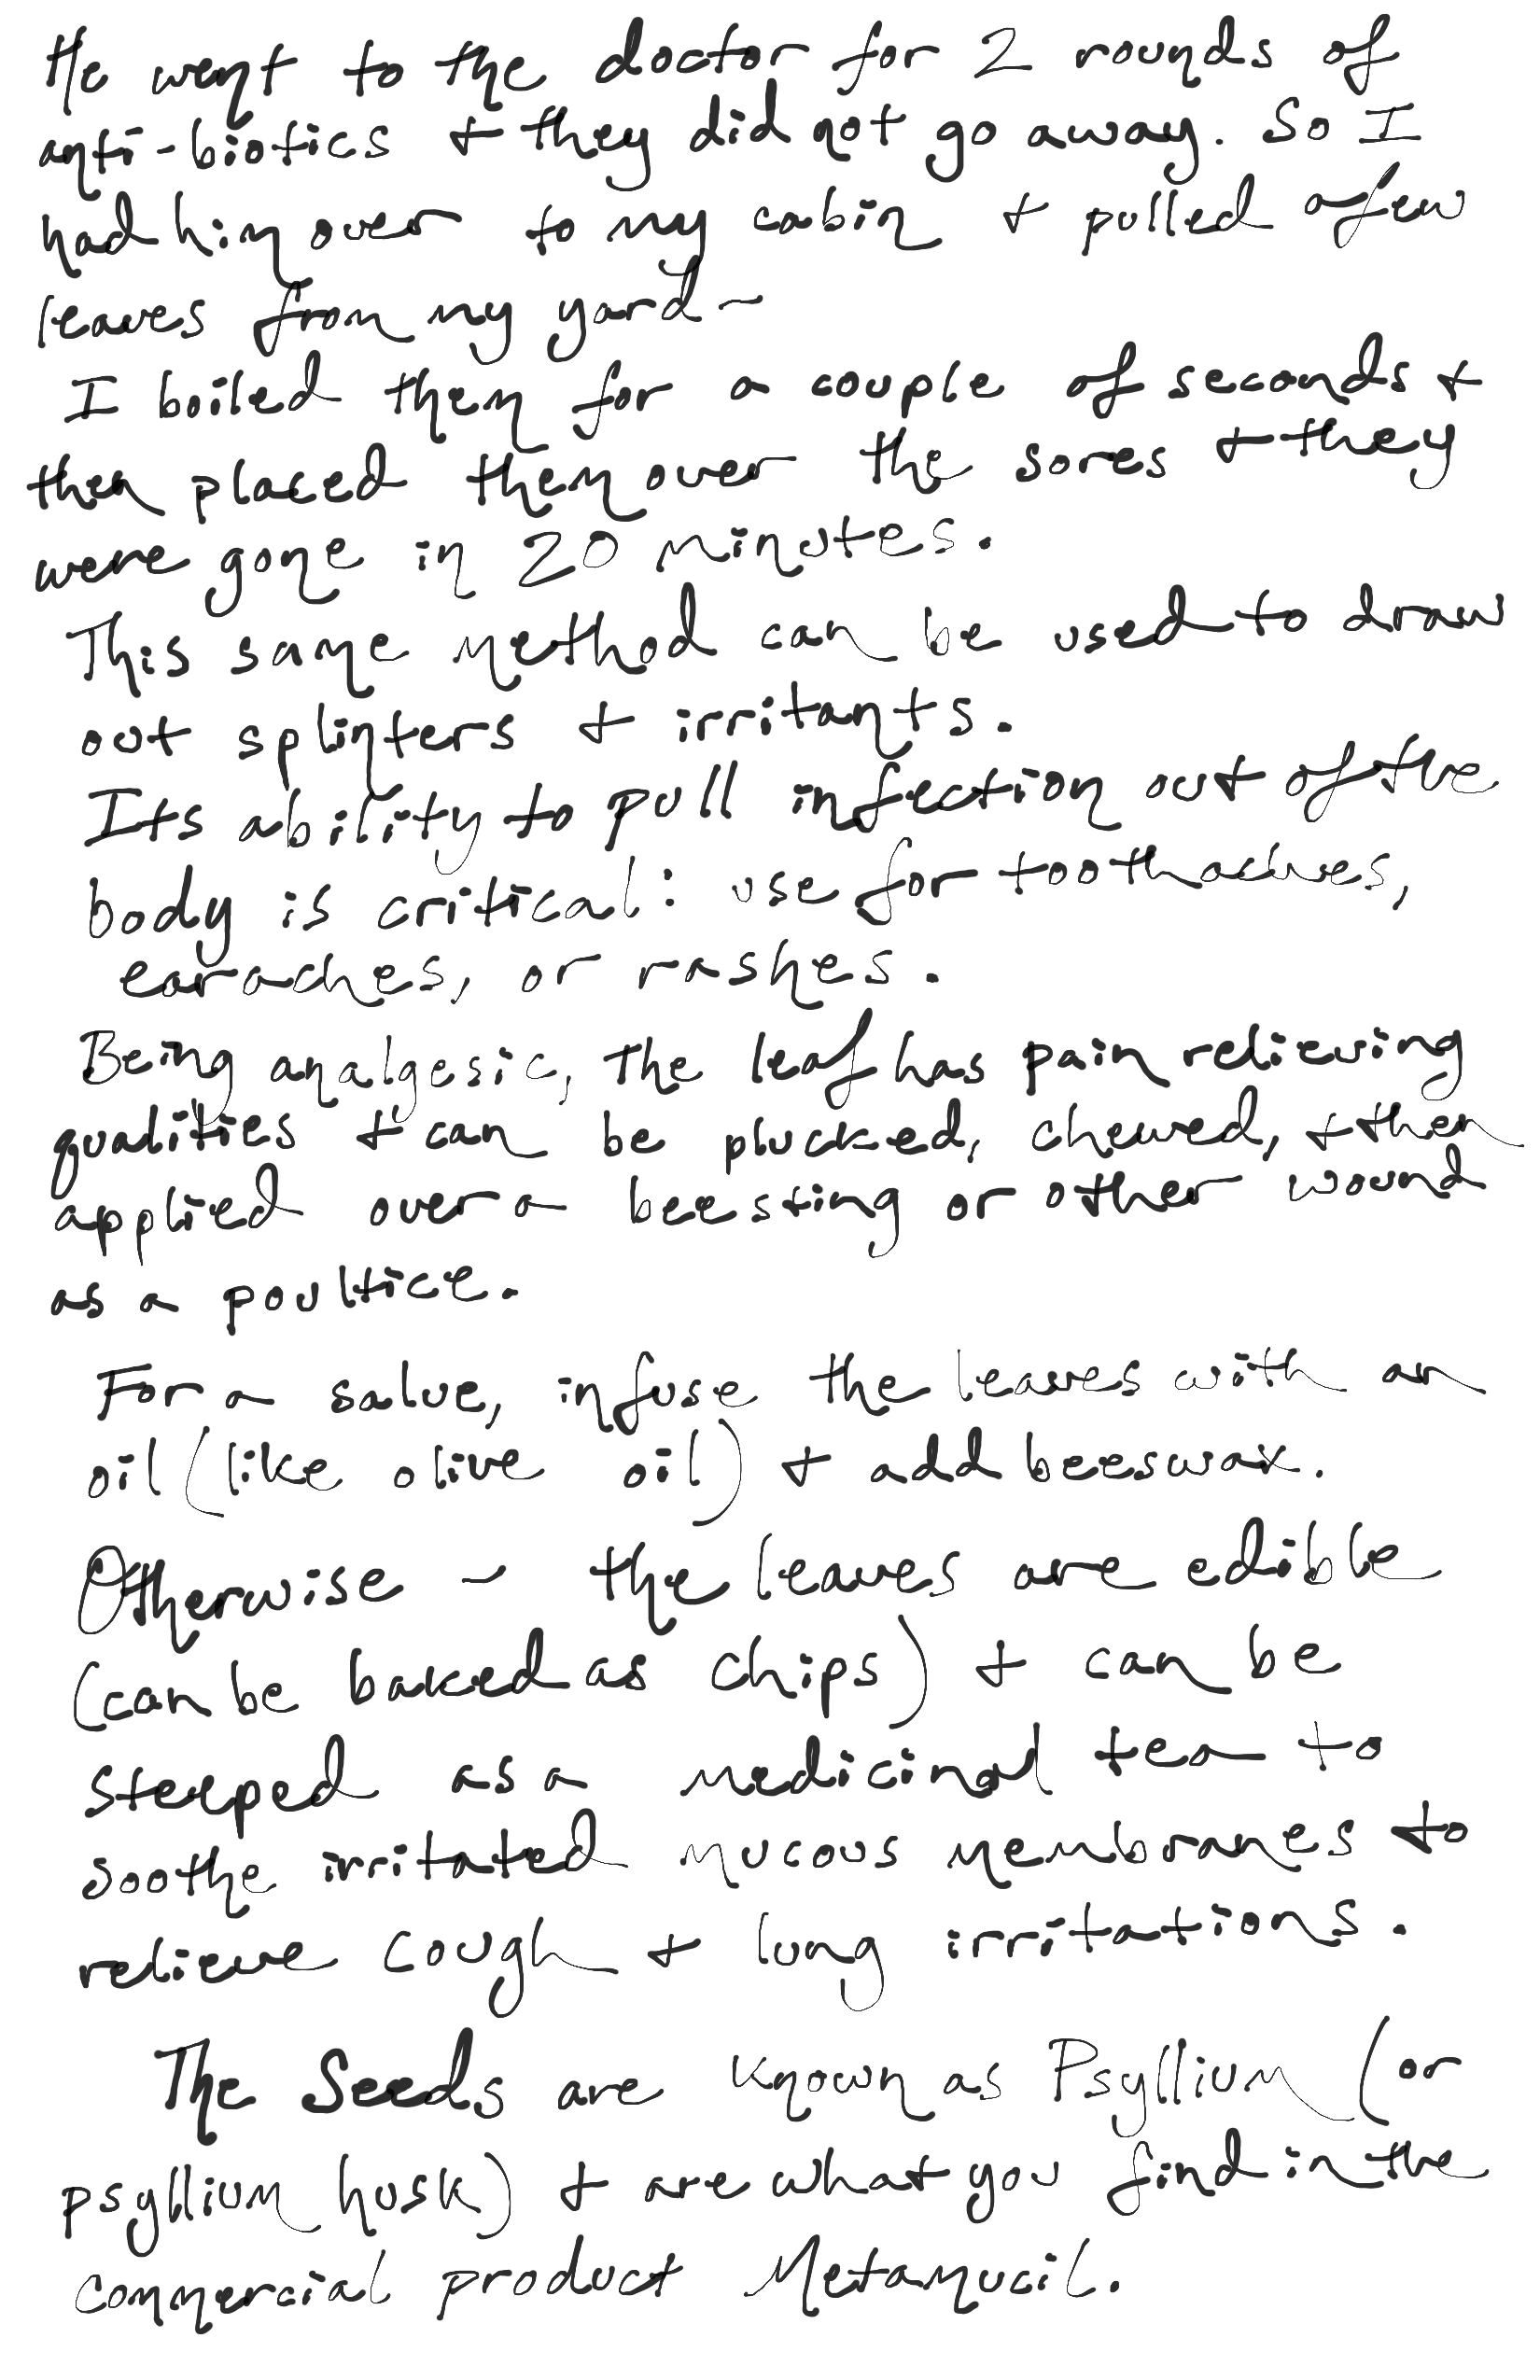 He went to the doctor for 2 rounds of
anti-biotics + they did not go away. So I
had him over to my cabin + pulled a few
leaves from my yard~
I boiled them for a couple of seconds +
then placed them over the sores + they
were gone in 20 minutes.
This same method can be used to draw
out splinters + irritants.
Its ability to pull infection out of the
body is critical: use for toothaches,
earaches, or rashes.
Being analgesic, the leaf has pain relieving
qualities + can be plucked, chewed, + then
applied over a bee sting or other wound
as a poultice.
For a salve, infuse the leaves with an
oil (like olive oil) + add beeswax.
Otherwise ~ the leaves are edible
(can be baked as chips) + can be
steeped as a medicinal tea to
soothe irritated mucous membranes to
relieve cough + lung irritations.
The Seeds are known as Psyllium (or
psyllium husk) + are what you find in the
commercial product Metamucil.